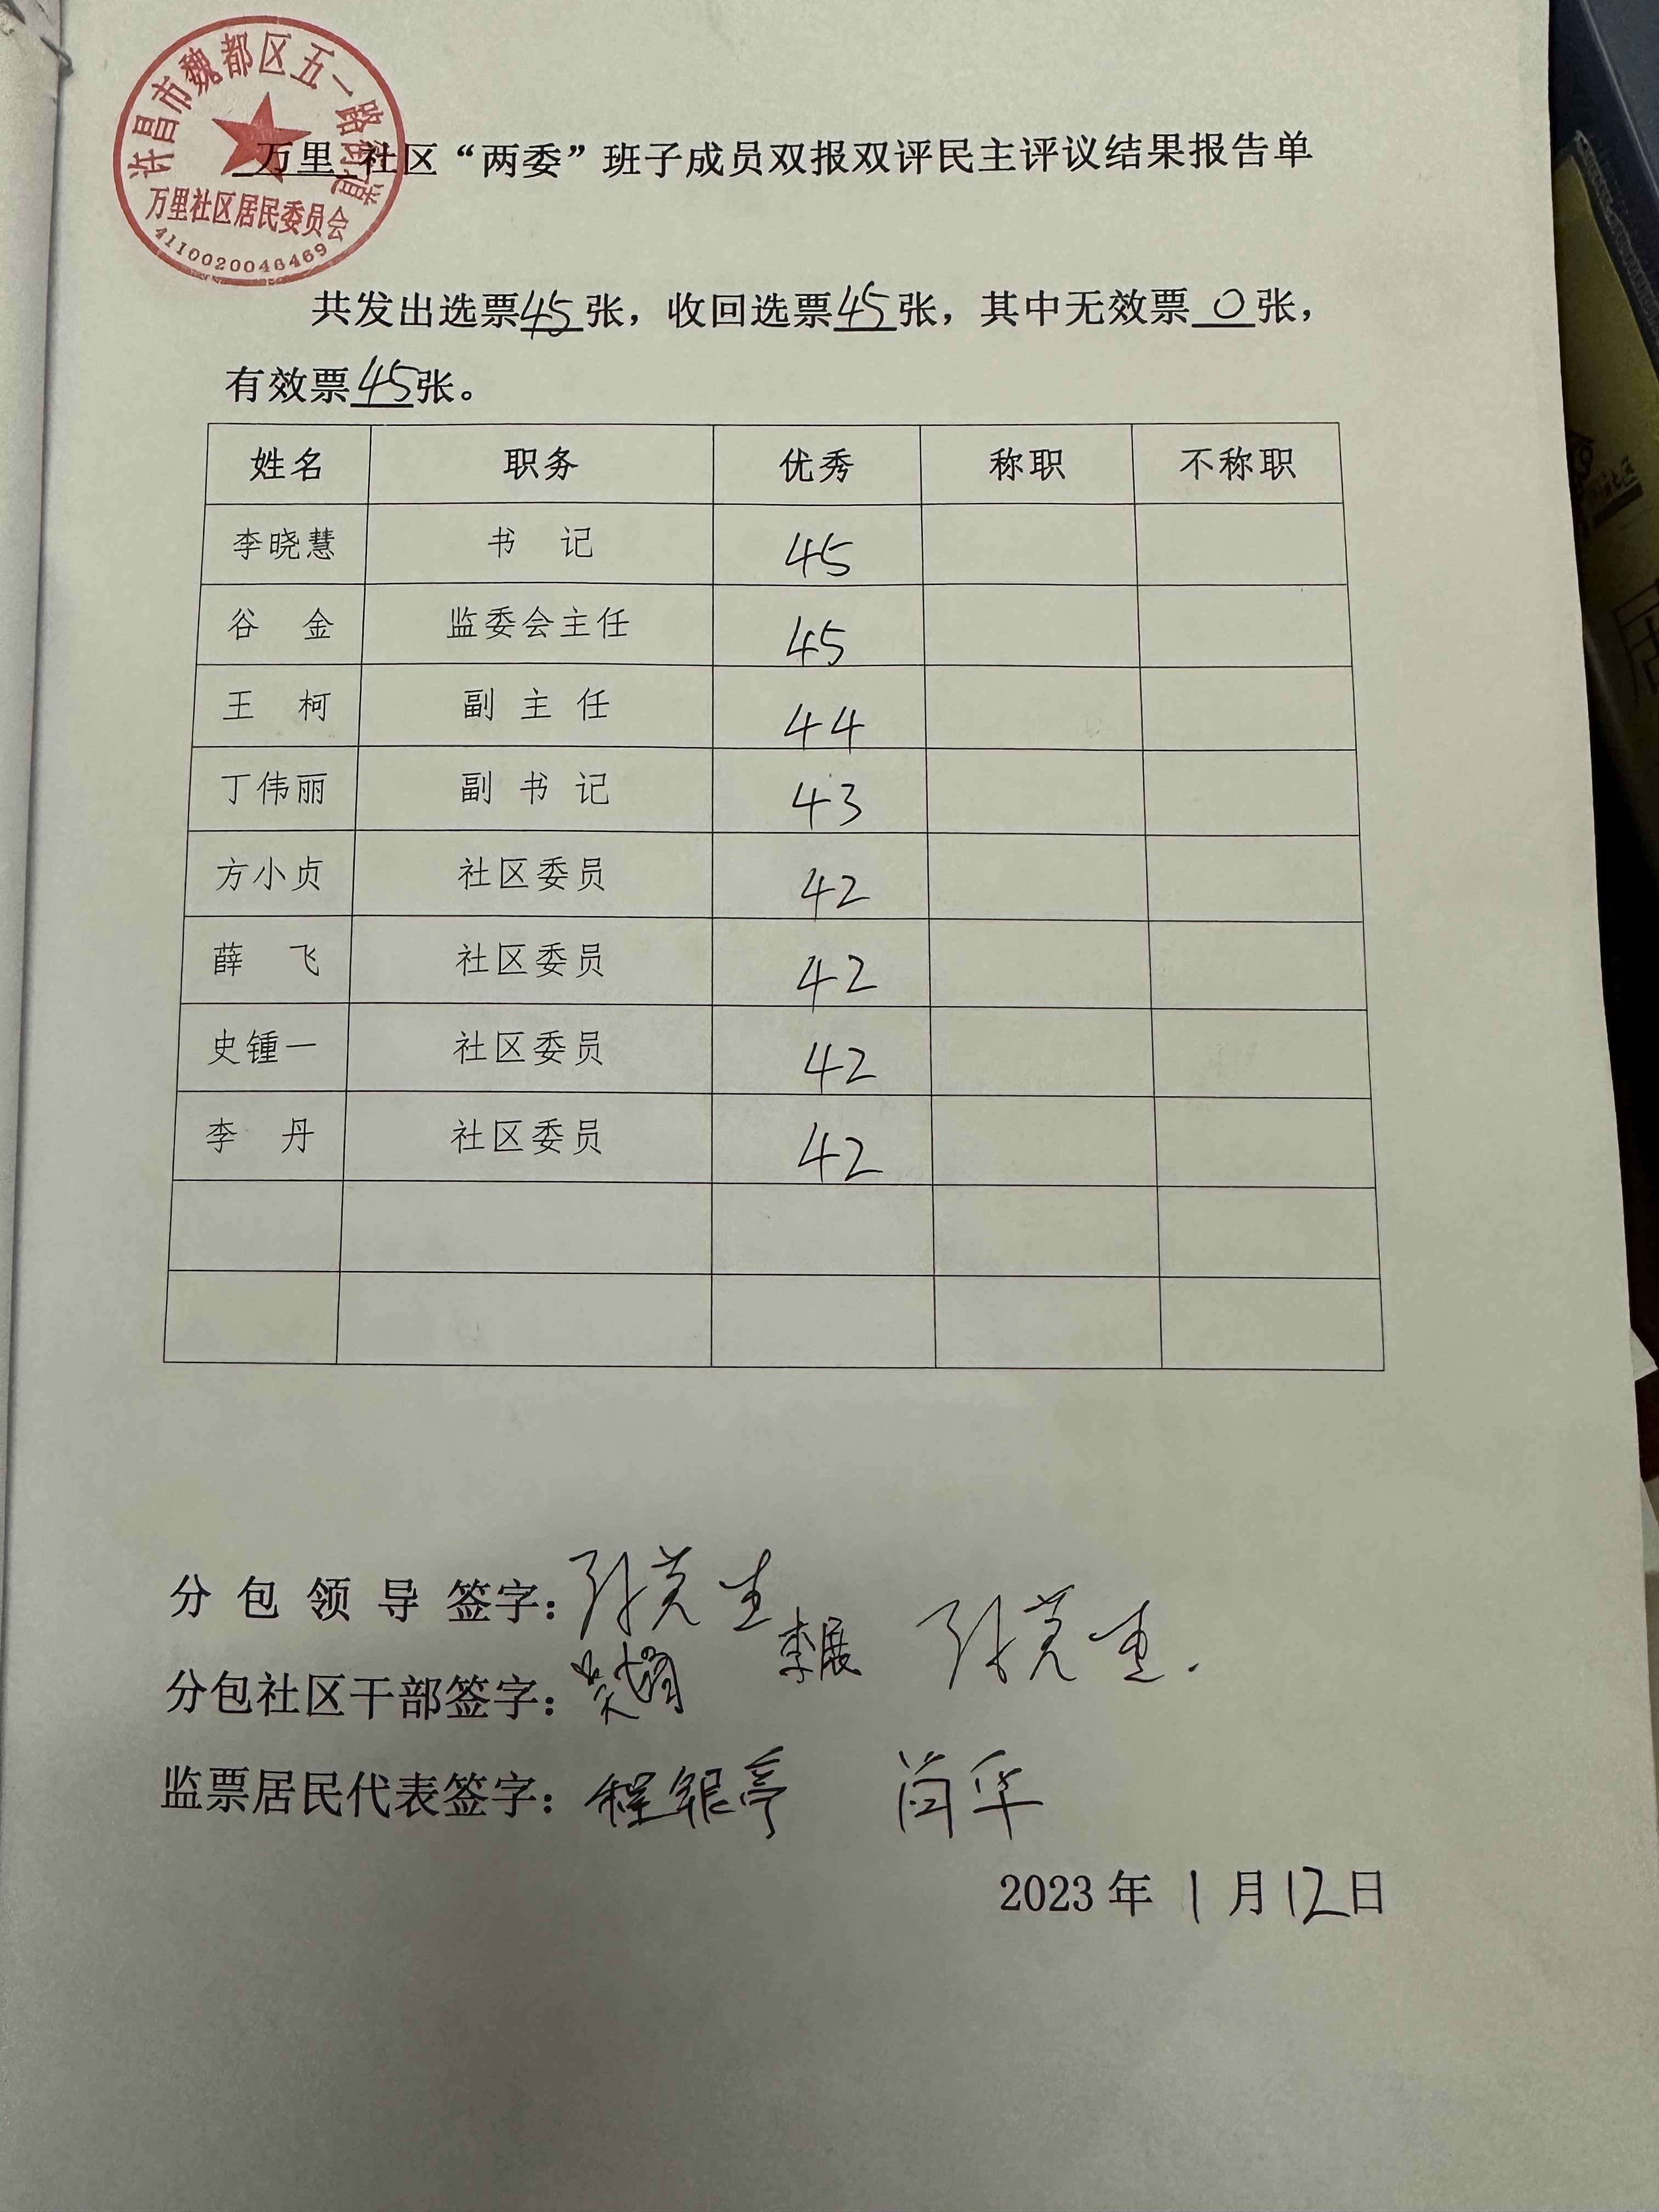 许昌市魏都区五一路街道
万里社区居民委员会
4110020046469
万里 社区“两委”班子成员双报双评民主评议结果报告单
共发出选票45张，收回选票45张，其中无效票0张，
有效票45张。
姓名 职务 优秀 称职 不称职
李晓慧 书 记 45
谷 金 监委会主任 45
王 柯 副 主 任 44
丁伟丽 副 书 记 43
方小贞 社区委员 42
薛 飞 社区委员 42
史锺一 社区委员 42
李 丹 社区委员 42
分包领导签字：
分包社区干部签字： 李展
监票居民代表签字：程银亭 闫华
2023年1月12日
社区